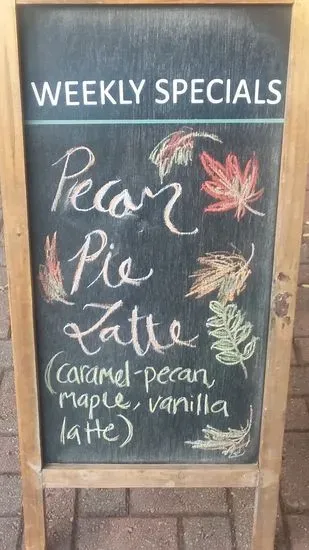 WEEKLY SPECIALS
Pecan
Pie
Latte
(caramel-pecan,
maple, vanilla
latte)